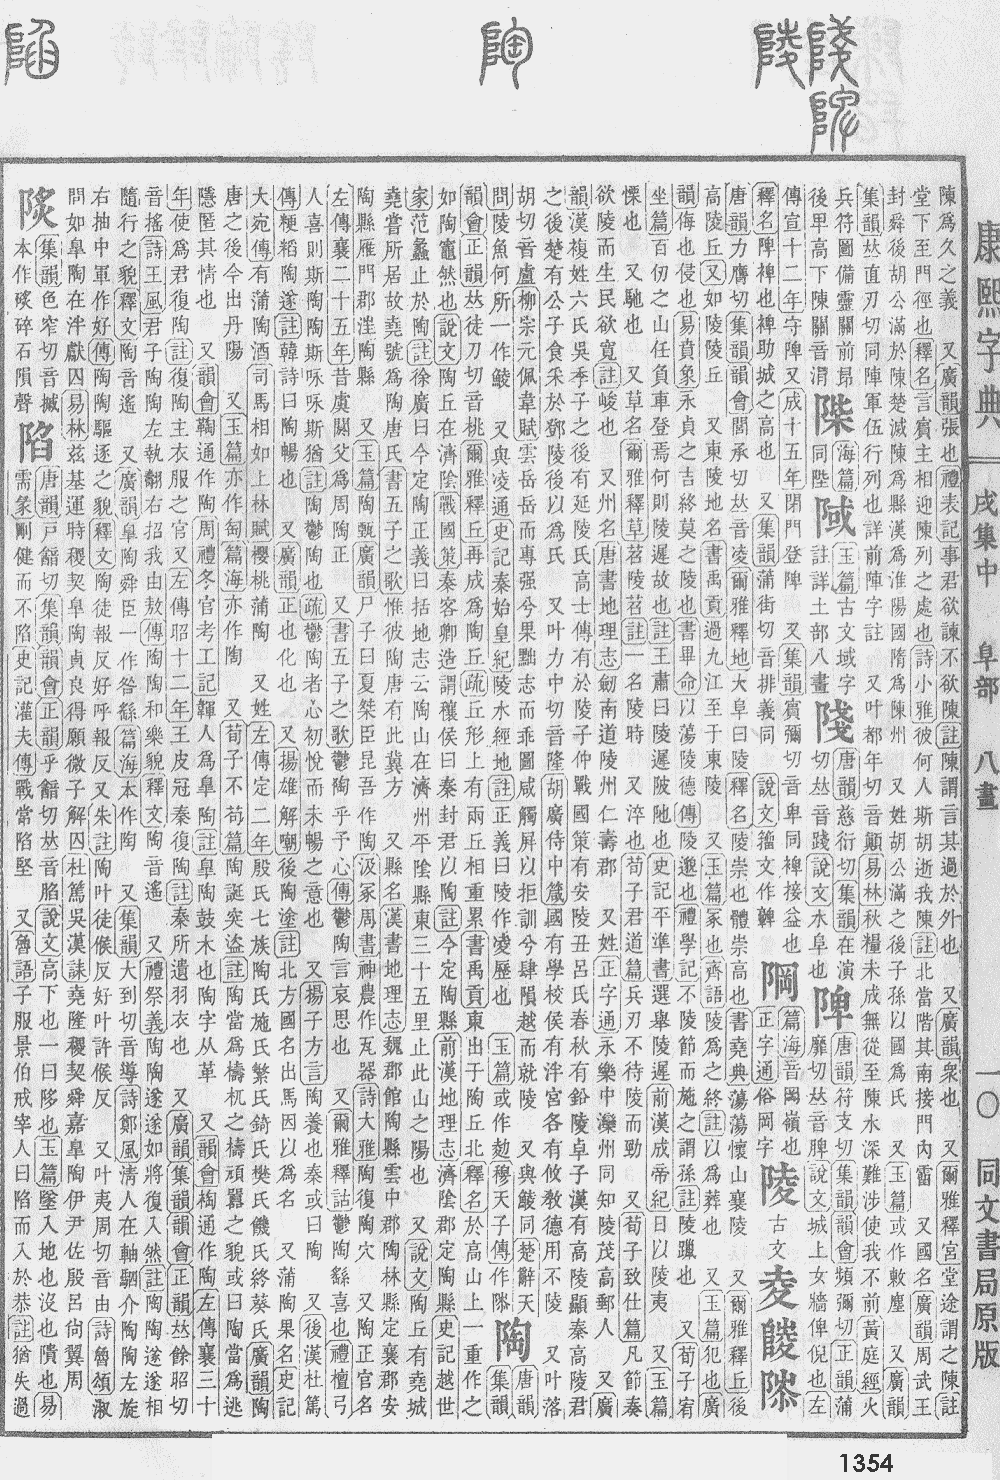 康熙字典 戌集中 阜部 八畫 一〇 同文書局原版
陳爲久之義 又廣韻張也禮表記事君欲諫不欲陳註陳謂言其過於外也 又廣韻衆也 又爾雅釋宮堂途謂之陳註
堂下至門徑也釋名言賓主相迎陳列之處也詩小雅彼何人斯胡逝我陳註北當階其南接門內霤 又國名廣韻周武王
封舜後胡公滿於陳楚滅陳爲縣漢爲淮陽國隋爲陳州 又姓胡公滿之後子孫以國爲氏 又玉篇或作敶塵 又廣韻
集韻𠀤直刃切同陣軍伍行列也詳前陣字註 又叶都年切音顚易林秋糧未成無從至陳水深難涉使我不前黃庭經火
兵符圖備靈關前昂後卑高下陳關音渭
陞 海篇同陛
陙 玉篇古文域字註詳土部八畫
陵 唐韻慈衍切集韻在演切𠀤音踐說文水阜也
陴 唐韻符支切集韻韻會頻彌切正韻蒲麋切𠀤音脾說文城上女牆俾倪也左
傳宣十二年守陴又成十五年閉門登陴 又集韻賓彌切音卑同裨接益也
釋名陴裨也裨助城之高也 又集韻蒲街切音排義同 說文籀文作𩫫
陯 篇海音岡嶺也正字通俗岡字
陵 古文夌餕䧙
唐韻力膺切集韻韻會閭承切𠀤音凌爾雅釋地大阜曰陵釋名陵崇也體崇高也書堯典蕩蕩懷山襄陵 又爾雅釋丘後
高陵丘又如陵陵丘 又東陵地名書禹貢過九江至于東陵 又玉篇冢也齊語陵爲之終註以爲葬也 又玉篇犯也廣
韻侮也侵也易賁象永貞之吉終莫之陵也書畢命以蕩陵德傳陵邈也禮學記不陵節而施之謂孫註陵躐也 又荀子宥
坐篇百仞之山任負車登焉何則陵遲故也註王肅曰陵遲陂阤也史記平準書選舉陵遲前漢成帝紀日以陵夷 又玉篇
慄也 又馳也 又草名爾雅釋草苕陵苕註一名陵時 又淬也荀子君道篇兵刃不待陵而勁 又荀子致仕篇凡節奏
欲陵而生民欲寬註峻也 又州名唐書地理志劒南道陵州仁壽郡 又姓正字通永樂中灤州同知陵茂高郵人 又廣
韻漢複姓六氏吳季子之後有延陵氏高士傳有於陵子仲戰國策有安陵丑呂氏春秋有鉛陵卓子漢有高陵顯秦高陵君
之後楚有公子食采於鄧陵後以爲氏 又叶力中切音隆胡廣侍中箴國有學校侯有泮宮各有攸敎德用不陵 又叶落
胡切音盧柳宗元佩韋賦雲岳岳而專强兮果黜志而乖圖咸觸屏以拒訓兮肆隕越而就陵 又與鯪同楚辭天
問陵魚何所一作鯪 又與凌通史記秦始皇紀陵水經地註正義曰陵作凌歷也 玉篇或作𨹧穆天子傳作䧙
陶 唐韻集韻
韻會正韻𠀤徒刀切音桃爾雅釋丘再成爲陶丘疏丘形上有兩丘相重累書禹貢東出于陶丘北釋名於高山上一重作之
如陶竈然也說文陶丘在濟陰戰國策秦客卿造謂穰侯曰秦封君以陶註今定陶縣前漢地理志濟陰郡定陶縣史記越世
家范蠡止於陶註徐廣曰今定陶正義曰括地志云陶山在濟州平陰縣東三十五里止此山之陽也 又說文陶丘有堯城
堯嘗所居故堯號爲陶唐氏書五子之歌惟彼陶唐有此冀方 又縣名漢書地理志魏郡館陶縣雲中郡陶林縣定襄郡安
陶縣雁門郡漥陶縣 又玉篇陶甄廣韻尸子曰夏桀臣昆吾作陶汲冢周書神農作瓦器詩大雅陶復陶穴 又陶正官名
左傳襄二十五年昔虞閼父爲周陶正 又書五子之歌鬱陶乎予心傳鬱陶言哀思也 又爾雅釋詁鬱陶繇喜也禮檀弓
人喜則斯陶陶斯咏咏斯猶註陶鬱陶也疏鬱陶者心初悅而未暢之意也 又揚子方言陶養也秦或曰陶 又後漢杜篤
傳粳稻陶遂註韓詩曰陶暢也 又廣韻正也化也 又揚雄解嘲後陶塗註北方國名出馬因以爲名 又蒲陶果名史記
大宛傳有蒲陶酒司馬相如上林賦櫻桃蒲陶 又姓左傳定二年殷氏七族陶氏施氏繁氏錡氏樊氏饑氏終葵氏廣韻陶
唐之後今出丹陽 又玉篇亦作匋篇海亦作陶 又荀子不苟篇陶誕突盜註陶當爲檮杌之檮頑嚚之貌或曰陶當爲逃
隱匿其情也 又韻會鞠通作陶周禮冬官考工記韗人爲皐陶註皐陶鼓木也陶字从革 又韻會裪通作陶左傳襄三十
年使爲君復陶註復陶主衣服之官又左傳昭十二年王皮冠秦復陶註秦所遺羽衣也 又廣韻集韻韻會正韻𠀤餘昭切
音搖詩王風君子陶陶左執翿右招我由敖傳陶陶和樂貌釋文陶音遙 又禮祭義陶陶遂遂如將復入然註陶陶遂遂相
隨行之貌釋文陶音遙 又廣韻皐陶舜臣一作咎繇篇海本作陶 又集韻大到切音導詩鄭風淸人在軸駟介陶陶左旋
右抽中軍作好傳陶陶驅逐之貌釋文陶徒報反好呼報反又朱註陶叶徒候反好叶許候反 又叶夷周切音由詩魯頌淑
問如皐陶在泮獻囚易林玆基運時稷契皐陶貞良得願微子解囚杜篤吳漢誄堯隆稷契舜嘉皐陶伊尹佐殷呂尙翼周
陖 集韻色窄切音摵本作㱥碎石隕聲
陷 唐韻戸韽切集韻韻會正韻乎韽切𠀤音臽說文高下也一曰陊也玉篇墜入地也沒也隤也易
需彖剛健而不陷史記灌夫傳戰常陷堅 又魯語子服景伯戒宰人曰陷而入於恭註猶失過
1354